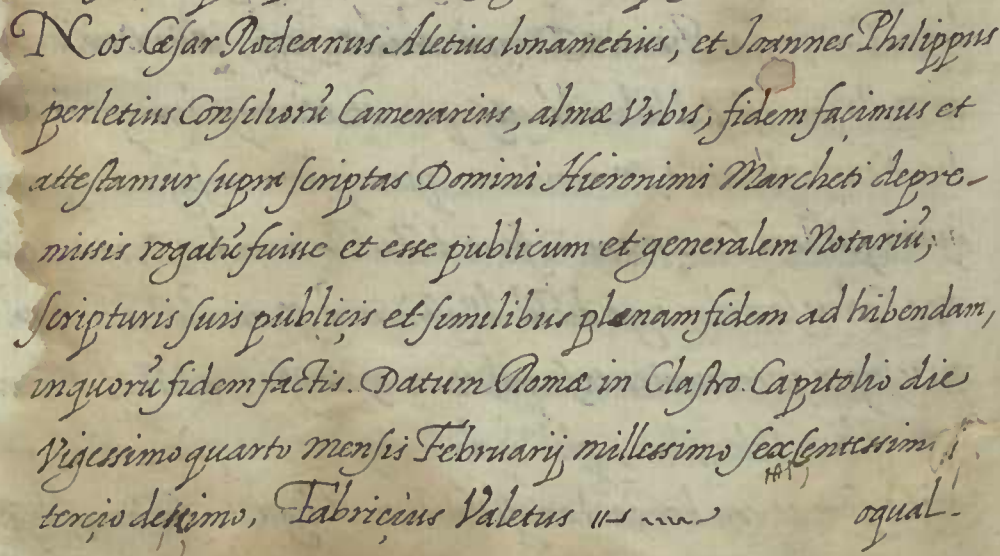 Nos Cæsar Rodeanus Aletius lonametius, et Joannes Philippus
perletius Consiliorũ Camerarius, almæ Vrbis, fidem façimus et
attestamur supra scriptas Domini Hieronimi Marcheti depre-
missis rogatũ fuisse et esse publicum et generalem Notariũ;
scripturis suis publiçis et similibus plenam fidem ad hibendam,
inquorũ fidem factis. Datum Romæ in Clastro. Capitolio die
Vigessimo quarto mensis Februarij millessimo sexsentessimo
terçio deçimo, Fabriçius Valetus oqual.